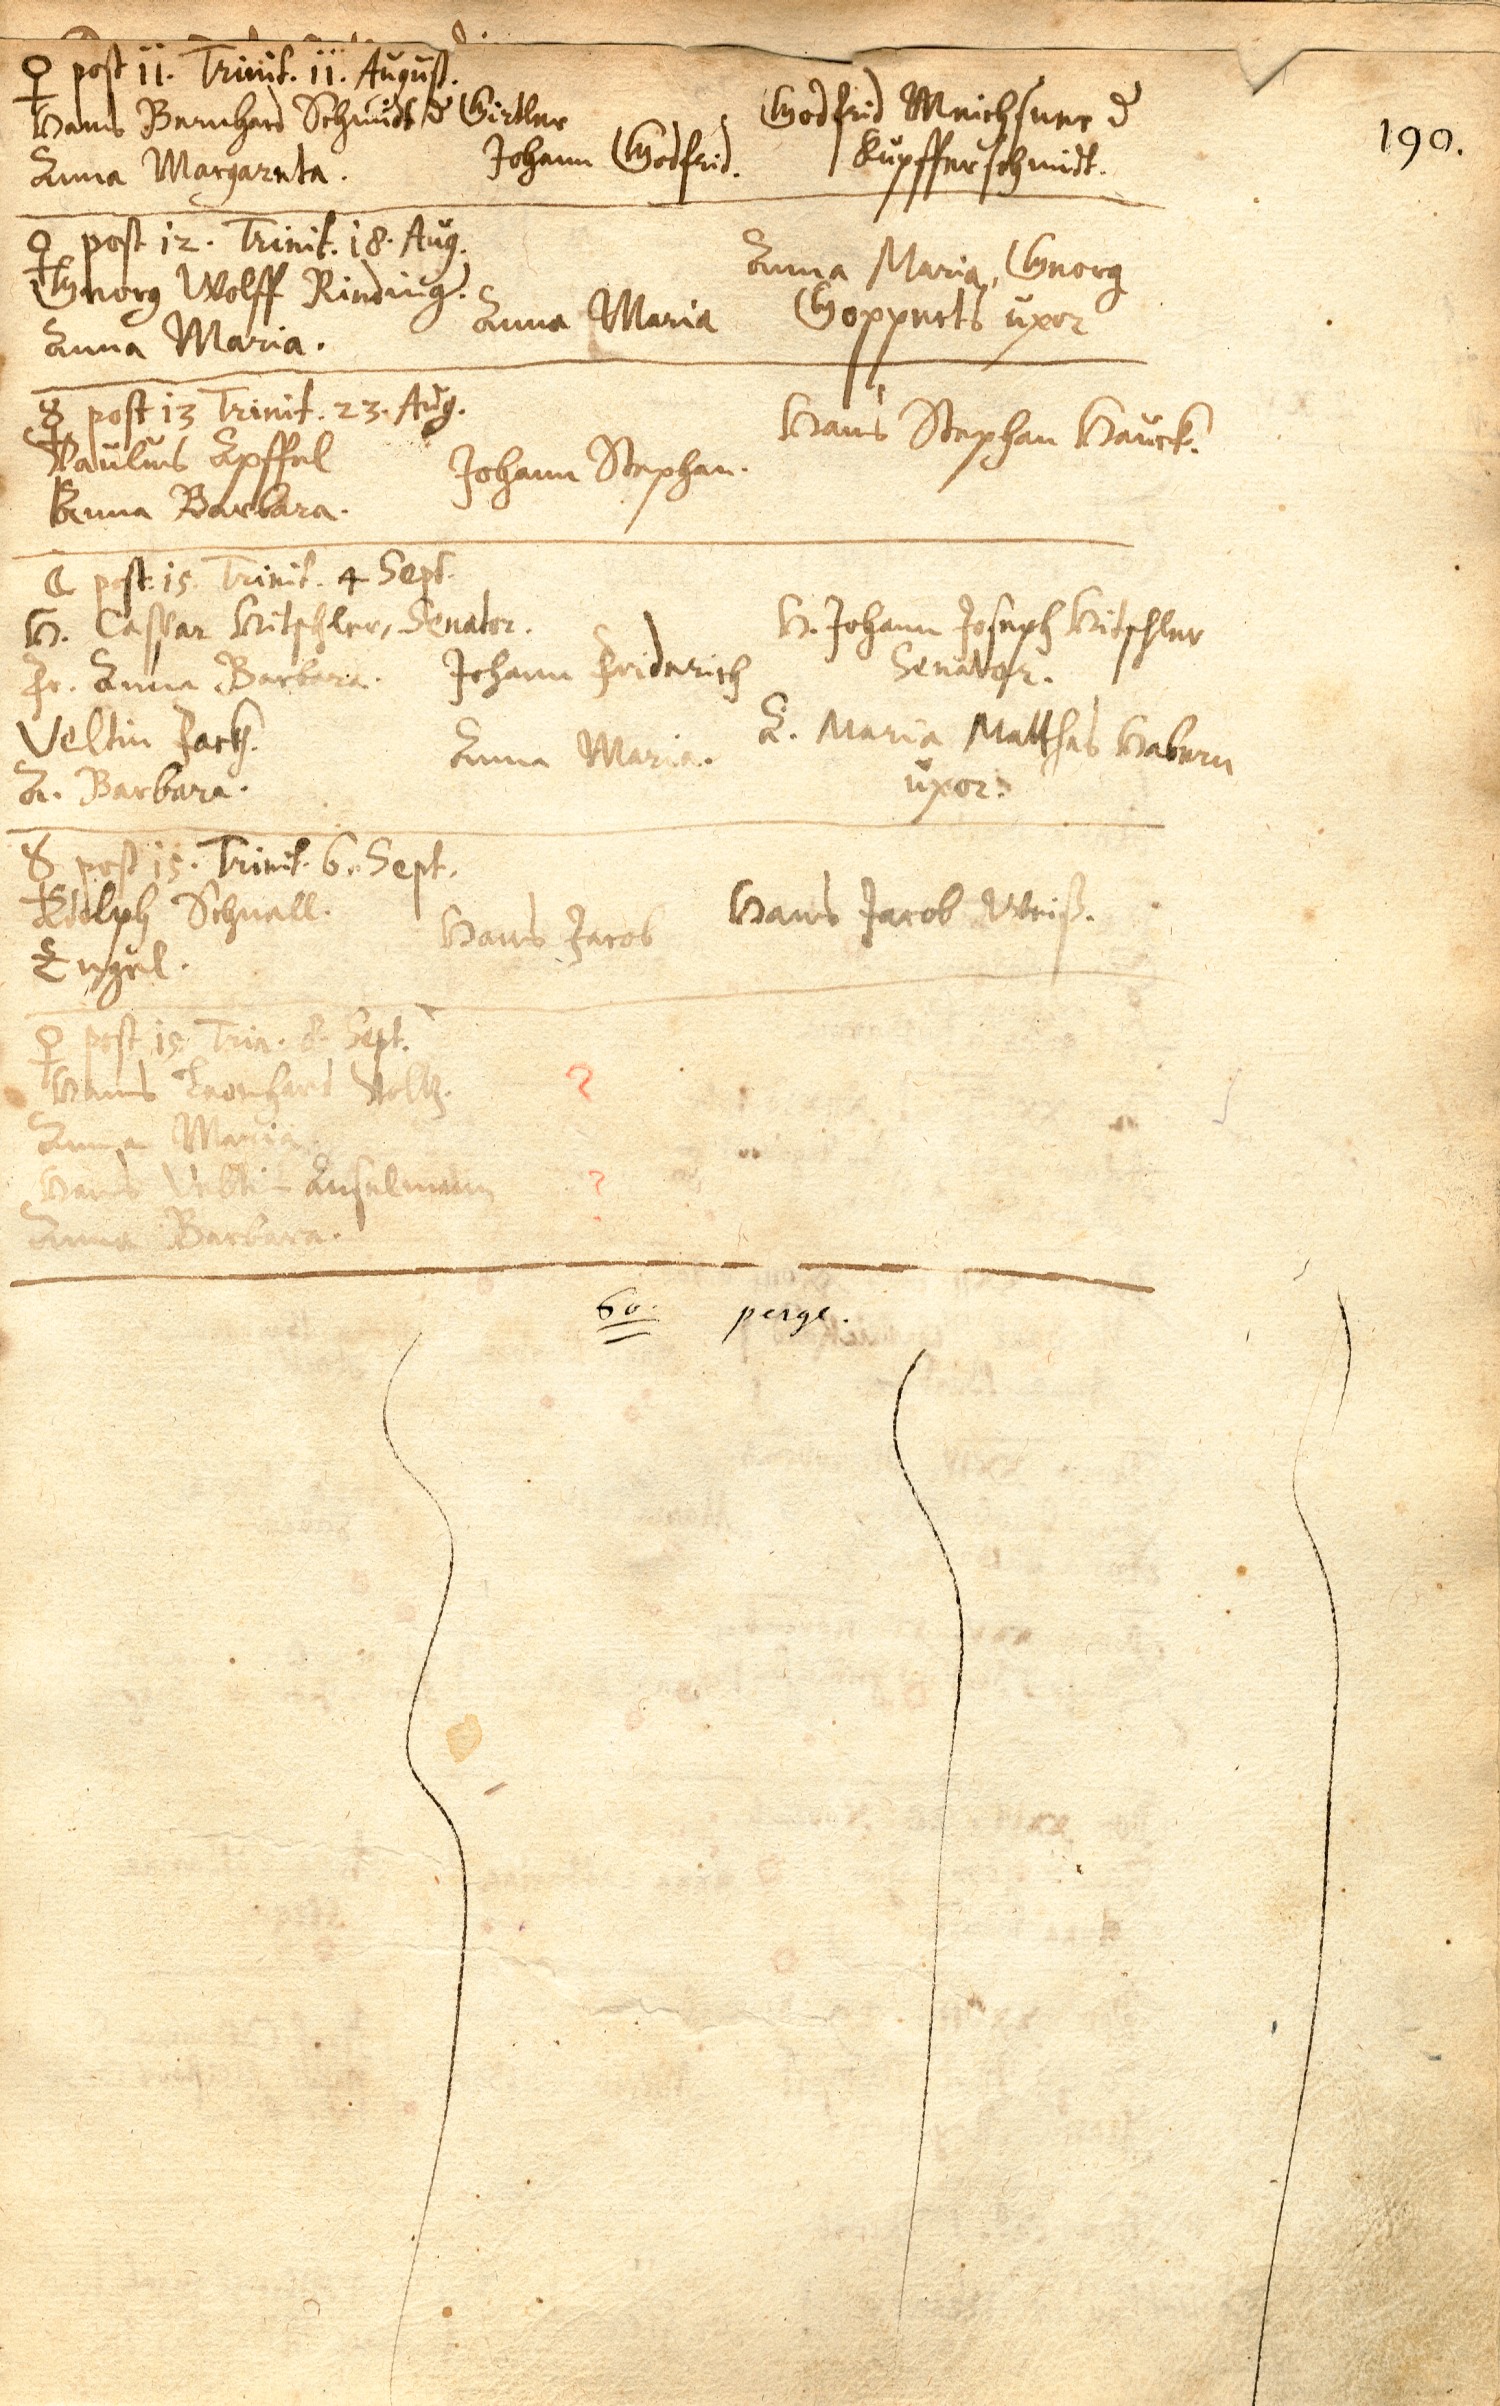 190.
♀ post 11. Trinit. 11. August.
Hans Bernhard Schmidt d Girtler
Anna Margareta.
Johann Godfrid.
Godfrid Meichsner d
Kupfferschmidt.
♀ post 12. Trinit. 18. Aug.
Georg Wolff Rinding.
Anna Maria.
Anna Maria
Anna Maria, Georg
Gopperts uxor
☿ post 13 Trinit. 23. Aug.
Paulus Apffel
Anna Barbara.
Johann Stephan.
Hans Stephan Hauck.
☾ post. 15. Trinit. 4 Sept.
H. Caspar Hitschler, Senator.
Fr. Anna Barbara.
Johann Friderich
H. Johann Joseph Hitschler
Senator.
Veltin Zach.
A. Barbara.
Anna Maria.
A. Maria Matthes Habern
uxor.
☿ post 15. Trinit. 6. Sept.
Adolph Schnall.
Engel.
Hans Jacob
Hans Jacob Weiß.
♀ post 15 Trin. 8. Sept.
Hans Leonhard Voltz.
Anna Maria
?
Hans Veltin Anselmann
Anna Barbara.
?
60. perge.